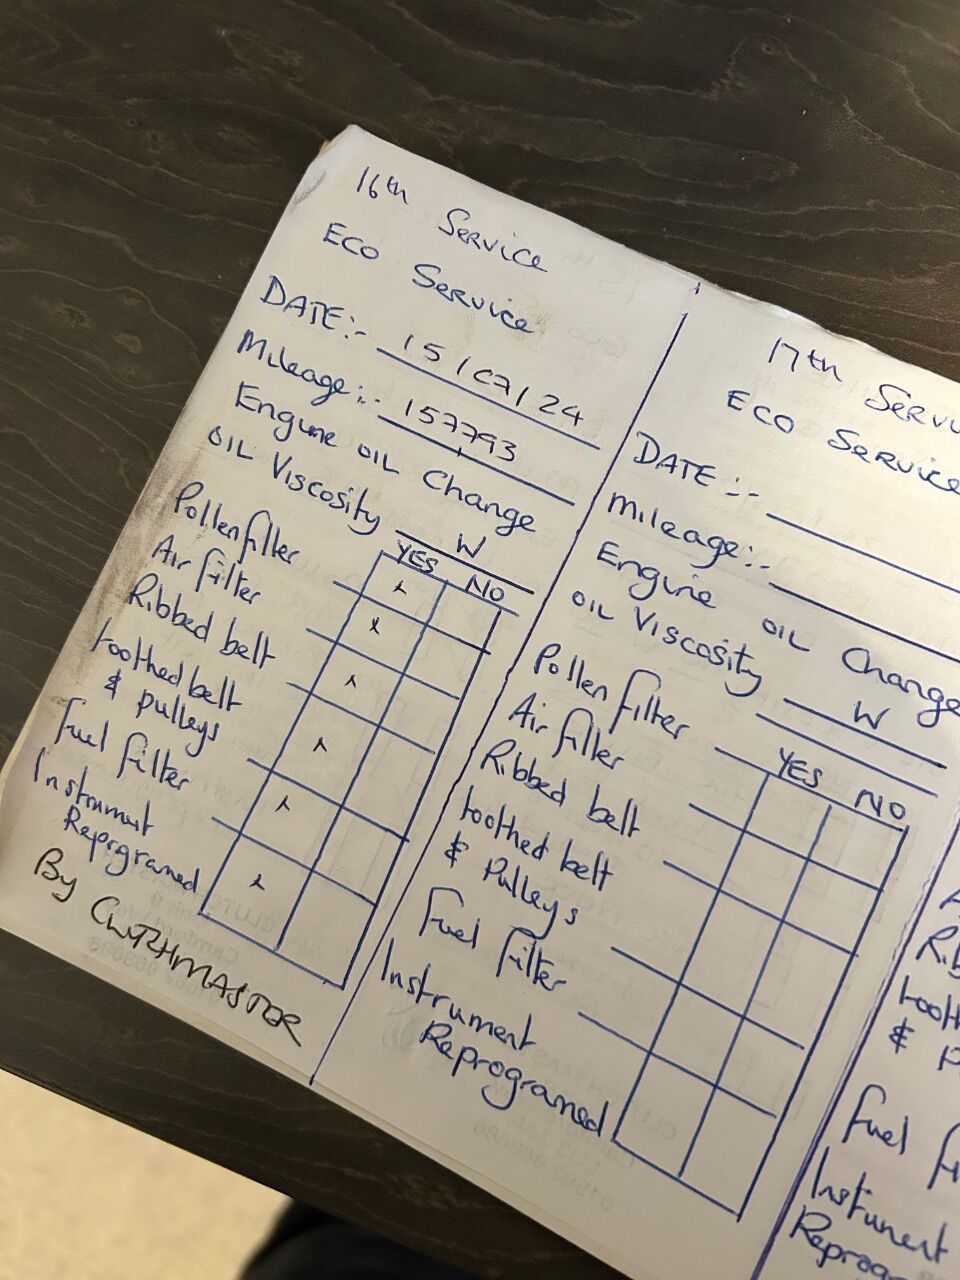 16th Service
ECO Service
DATE:- 15/07/24
Mileage:- 157793
Engine OIL Change
OIL Viscosity W
YES NO
Pollen filter
Air filter
Ribbed belt
toothed belt
& pulleys
Fuel filter
Instrument
Reprogramed
By CLUTCHMASTER
17th
ECO Service
DATE:-
Mileage:-
Engine OIL Change
OIL Viscosity W
YES NO
Pollen filter
Air filter
Ribbed belt
toothed belt
& Pulleys
Fuel filter
Instrument
Reprogramed
&
Fuel
Instrument